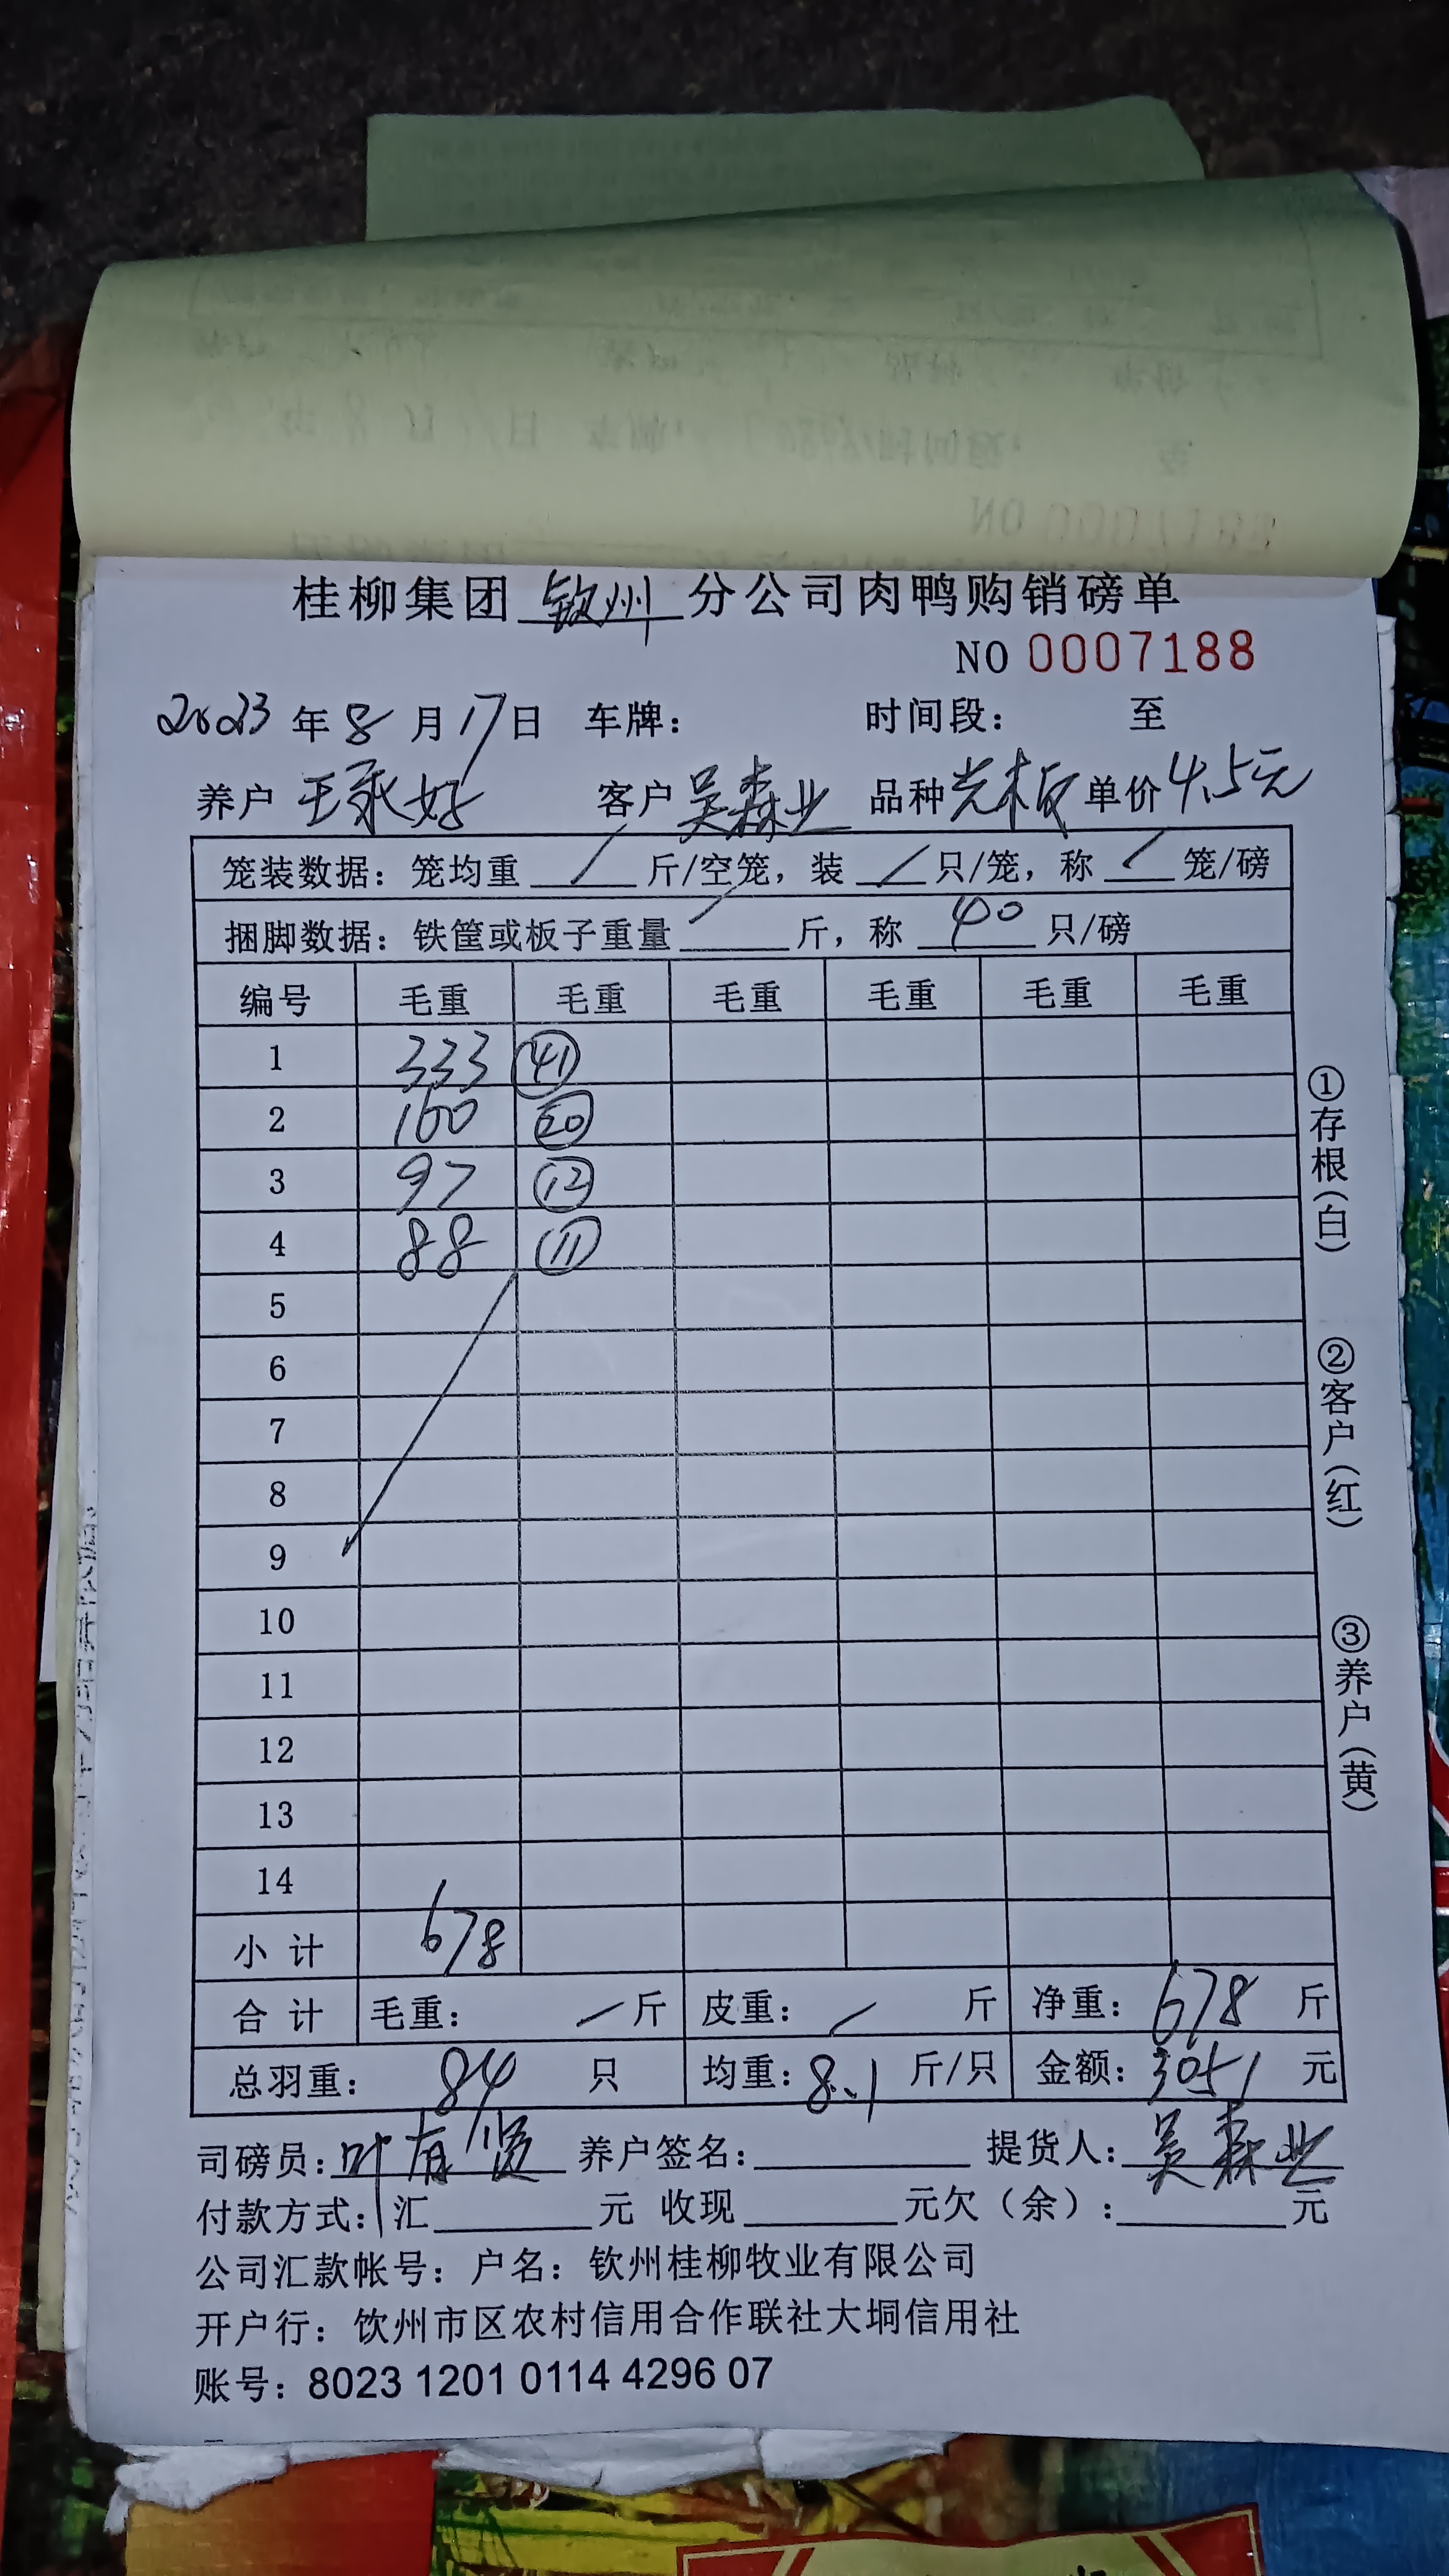 桂柳集团 钦州 分公司肉鸭购销磅单
NO 0007188
2023 年 8 月 17 日 车牌： 时间段： 至
养户 王承好 客户 吴森业 品种 光板 单价 4.5元
笼装数据：笼均重 / 斤/空笼，装 / 只/笼，称 / 笼/磅
捆脚数据：铁筐或板子重量 / 斤，称 40 只/磅
编号 毛重 毛重 毛重 毛重 毛重 毛重
1 333 ㊶
2 160 ⑳
3 97 ⑫
4 88 ⑪
5
6
7
8
9
10
11
12
13
14
小计 678
合计 毛重： / 斤 皮重： / 斤 净重：678 斤
总羽重： 84 只 均重：8.1 斤/只 金额：3051 元
司磅员：叶有贤 养户签名： 提货人：吴森业
付款方式：汇 元 收现 元欠（余）： 元
公司汇款帐号：户名：钦州桂柳牧业有限公司
开户行：钦州市区农村信用合作联社大垌信用社
账号：8023 1201 0114 4296 07
①存根（白）
②客户（红）
③养户（黄）